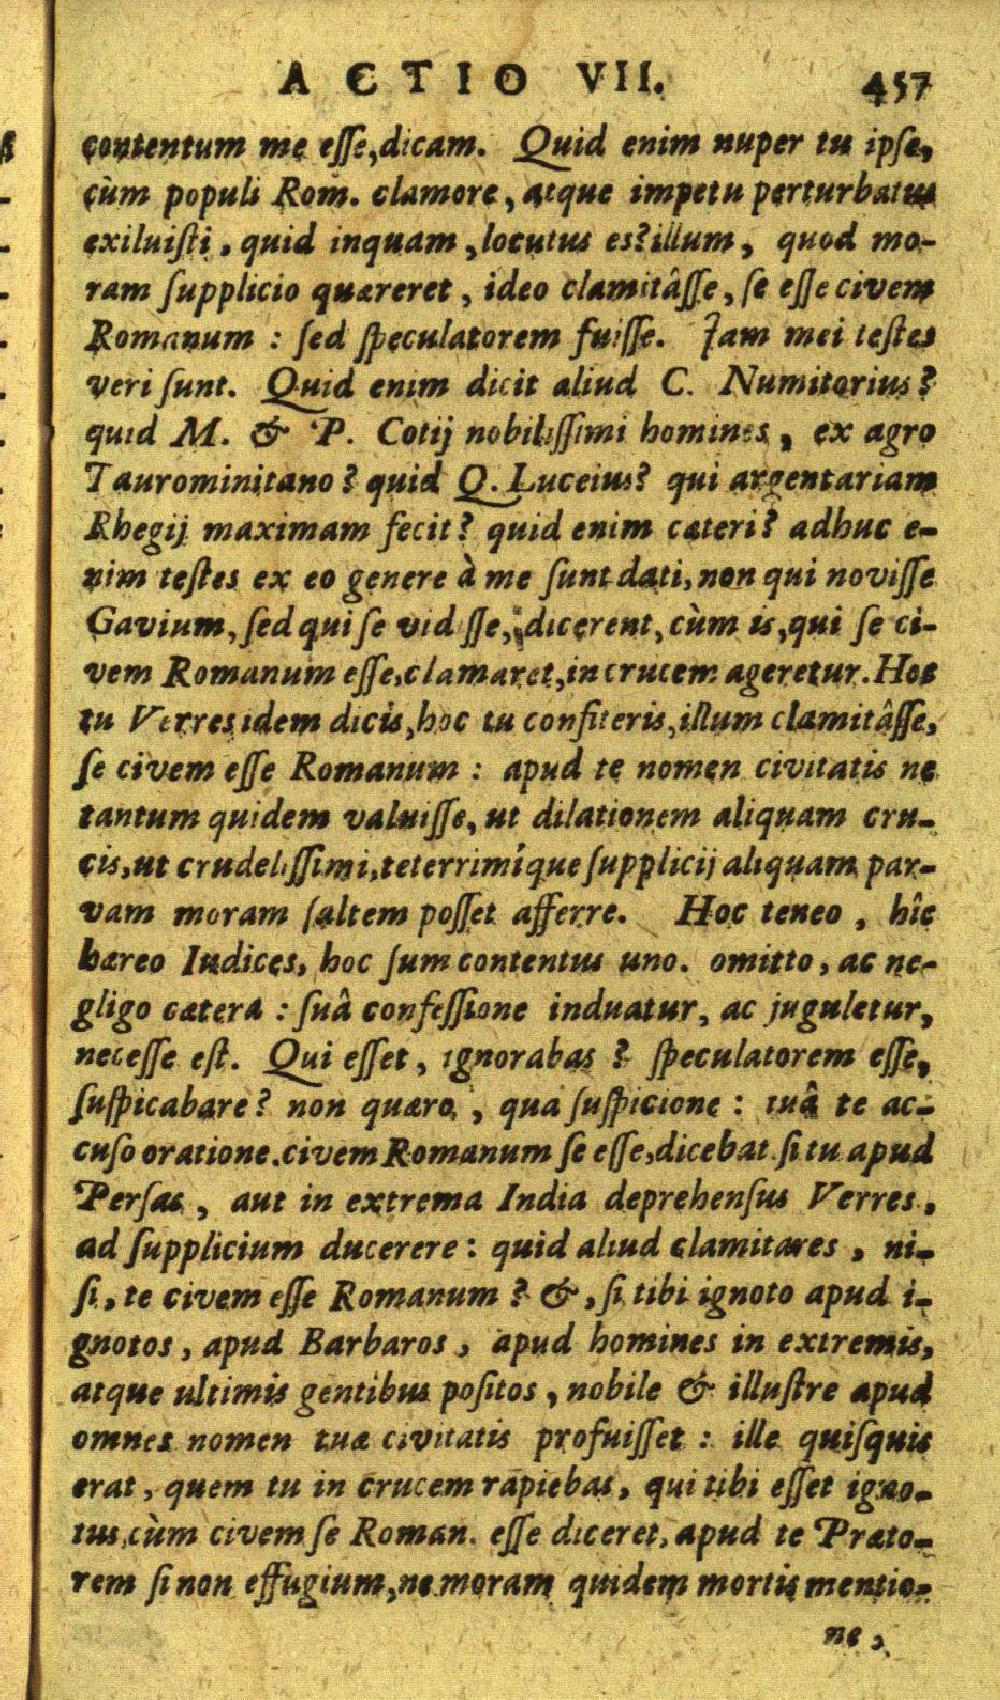 ACTIO VII. 457
contentum me esse, dicam. Quid enim nuper tu ipse,
cùm populi Rom. clamore, atque impetu perturbatus
exiluisti, quid inquam, locutus es? illum, quod mo-
ram supplicio quæreret, ideo clamitâsse, se esse civem
Romanum : sed speculatorem fuisse. Jam mei testes
veri sunt. Quid enim dicit aliud C. Numitorius?
quid M. & P. Cotij nobilissimi homines, ex agro
Taurominitano? quid Q. Luceius? qui argentariam
Rhegij maximam fecit? quid enim cæteri? adhuc e-
nim testes ex eo genere à me sunt dati, non qui novisse
Gavium, sed qui se vidisse, dicerent, cùm is, qui se ci-
vem Romanum esse, clamaret, in crucem ageretur. Hoc
tu Verres idem dicis, hoc tu confiteris, illum clamitâsse,
se civem esse Romanum : apud te nomen civitatis ne
tantum quidem valuisse, ut dilationem aliquam cru-
cis, ut crudelissimi, teterrimíque supplicij aliquam par-
vam moram saltem posset afferre. Hoc teneo, hîc
hæreo Iudices, hoc sum contentus uno. omitto, ac ne-
gligo cætera : suâ confessione induatur, ac juguletur,
necesse est. Qui esset, ignorabas? speculatorem esse,
suspicabare? non quæro, qua suspicione : tuâ te ac-
cuso oratione. civem Romanum se esse, dicebat. si tu apud
Persas, aut in extrema India deprehensus Verres,
ad supplicium ducerere : quid aliud clamitares, ni-
si, te civem esse Romanum? &, si tibi ignoto apud i-
gnotos, apud Barbaros, apud homines in extremis,
atque ultimis gentibus positos, nobile & illustre apud
omnes nomen tuæ civitatis profuisset : ille quisquis
erat, quem tu in crucem rapiebas, qui tibi esset igno-
tus, cùm civem se Roman. esse diceret, apud te Præto-
rem si non effugium, ne moram quidem mortis mentio-
ne,